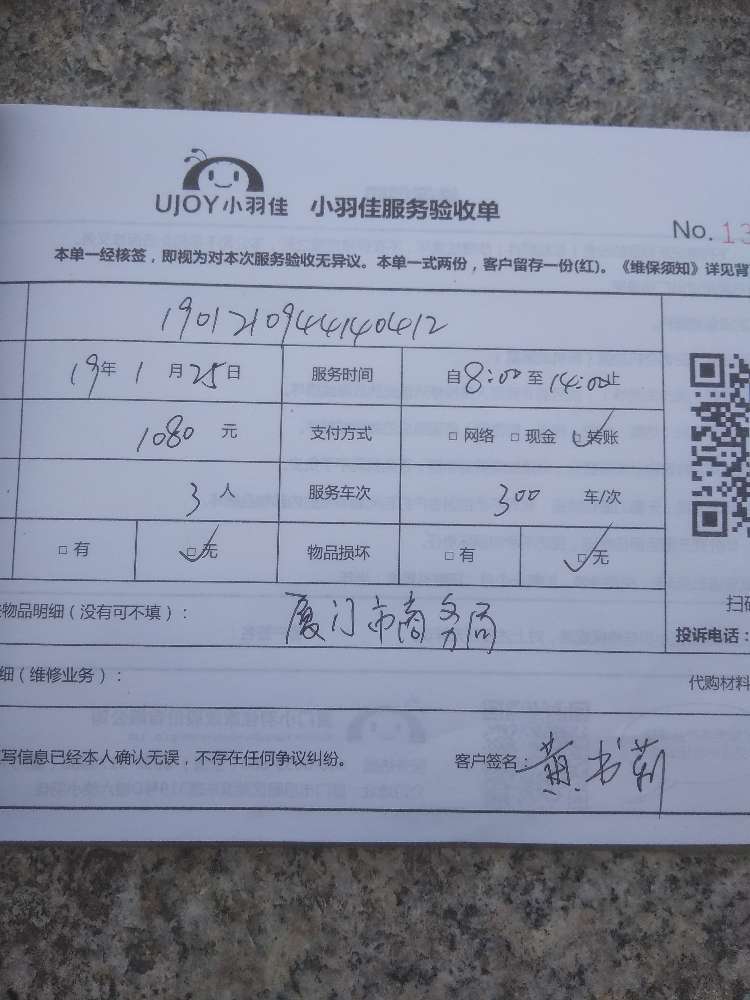 UJOY小羽佳 小羽佳服务验收单
No. 13
本单一经核签，即视为对本次服务验收无异议。本单一式两份，客户留存一份(红)。《维保须知》详见背
190121094414041​2
19年 1月25日 服务时间 自8:00至14:00止
1080元 支付方式 □ 网络 □ 现金 □ 转账
3人 服务车次 300 车/次
□ 有 □ 无 物品损坏 □ 有 □ 无
物品明细（没有可不填）： 厦门市商务局
扫
投诉电话：
细（维修业务）： 代购材料
写信息已经本人确认无误，不存在任何争议纠纷。 客户签名：黄书莉